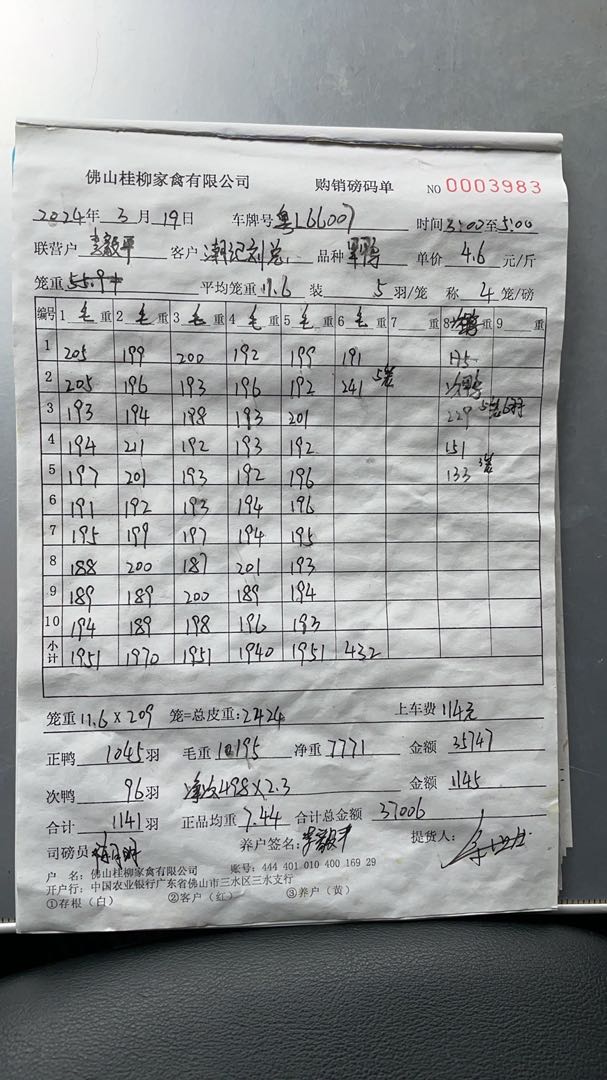 佛山桂柳家禽有限公司 购销磅码单 NO 0003983
2024年 3月 19日 车牌号 粤L66007 时间 3:00至5:00
联营户 客户 品种 单价 4.6 元/斤
笼重 55.9斤 平均笼重 11.6 装 5 羽/笼 称 4 笼/磅
编号 1 毛 重 2 毛 重 3 毛 重 4 毛 重 5 毛 重 6 毛 重 7 重 8 重 9 重
1 205 199 200 192 199 191 175
2 205 196 193 196 192 241 5笼 次鸭
3 193 194 198 193 201 229
4 194 211 192 193 192 151
5 197 201 193 192 196 133
6 191 192 193 194 196
7 195 199 197 194 195
8 188 200 187 201 193
9 189 189 200 189 194
10 194 189 198 196 193
小计 1951 1970 1951 1940 1951 432
笼重 11.6 X 209 笼=总皮重: 2424 上车费 114元
正鸭 1045 羽 毛重 10195 净重 7771 金额 35747
次鸭 96 羽 净次498 X 2.3 金额 1145
合计 1141 羽 正品均重 7.44 合计总金额 37006
司磅员 养户签名: 提货人:
户 名: 佛山桂柳家禽有限公司 账号: 444 401 010 400 169 29
开户行: 中国农业银行广东省佛山市三水区三水支行
①存根(白) ②客户(红) ③养户(黄)